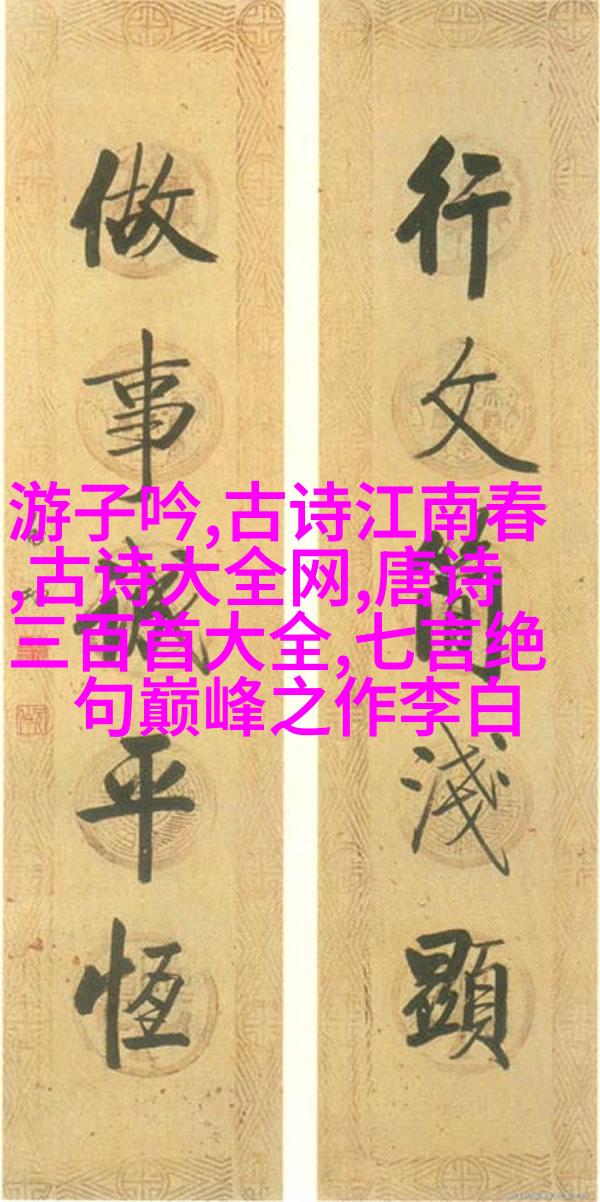 行文簡淺顯
做事誠平恆
游子吟,古诗江南春
,古诗大全网,唐诗
三百首大全,七言绝
句巅峰之作李白